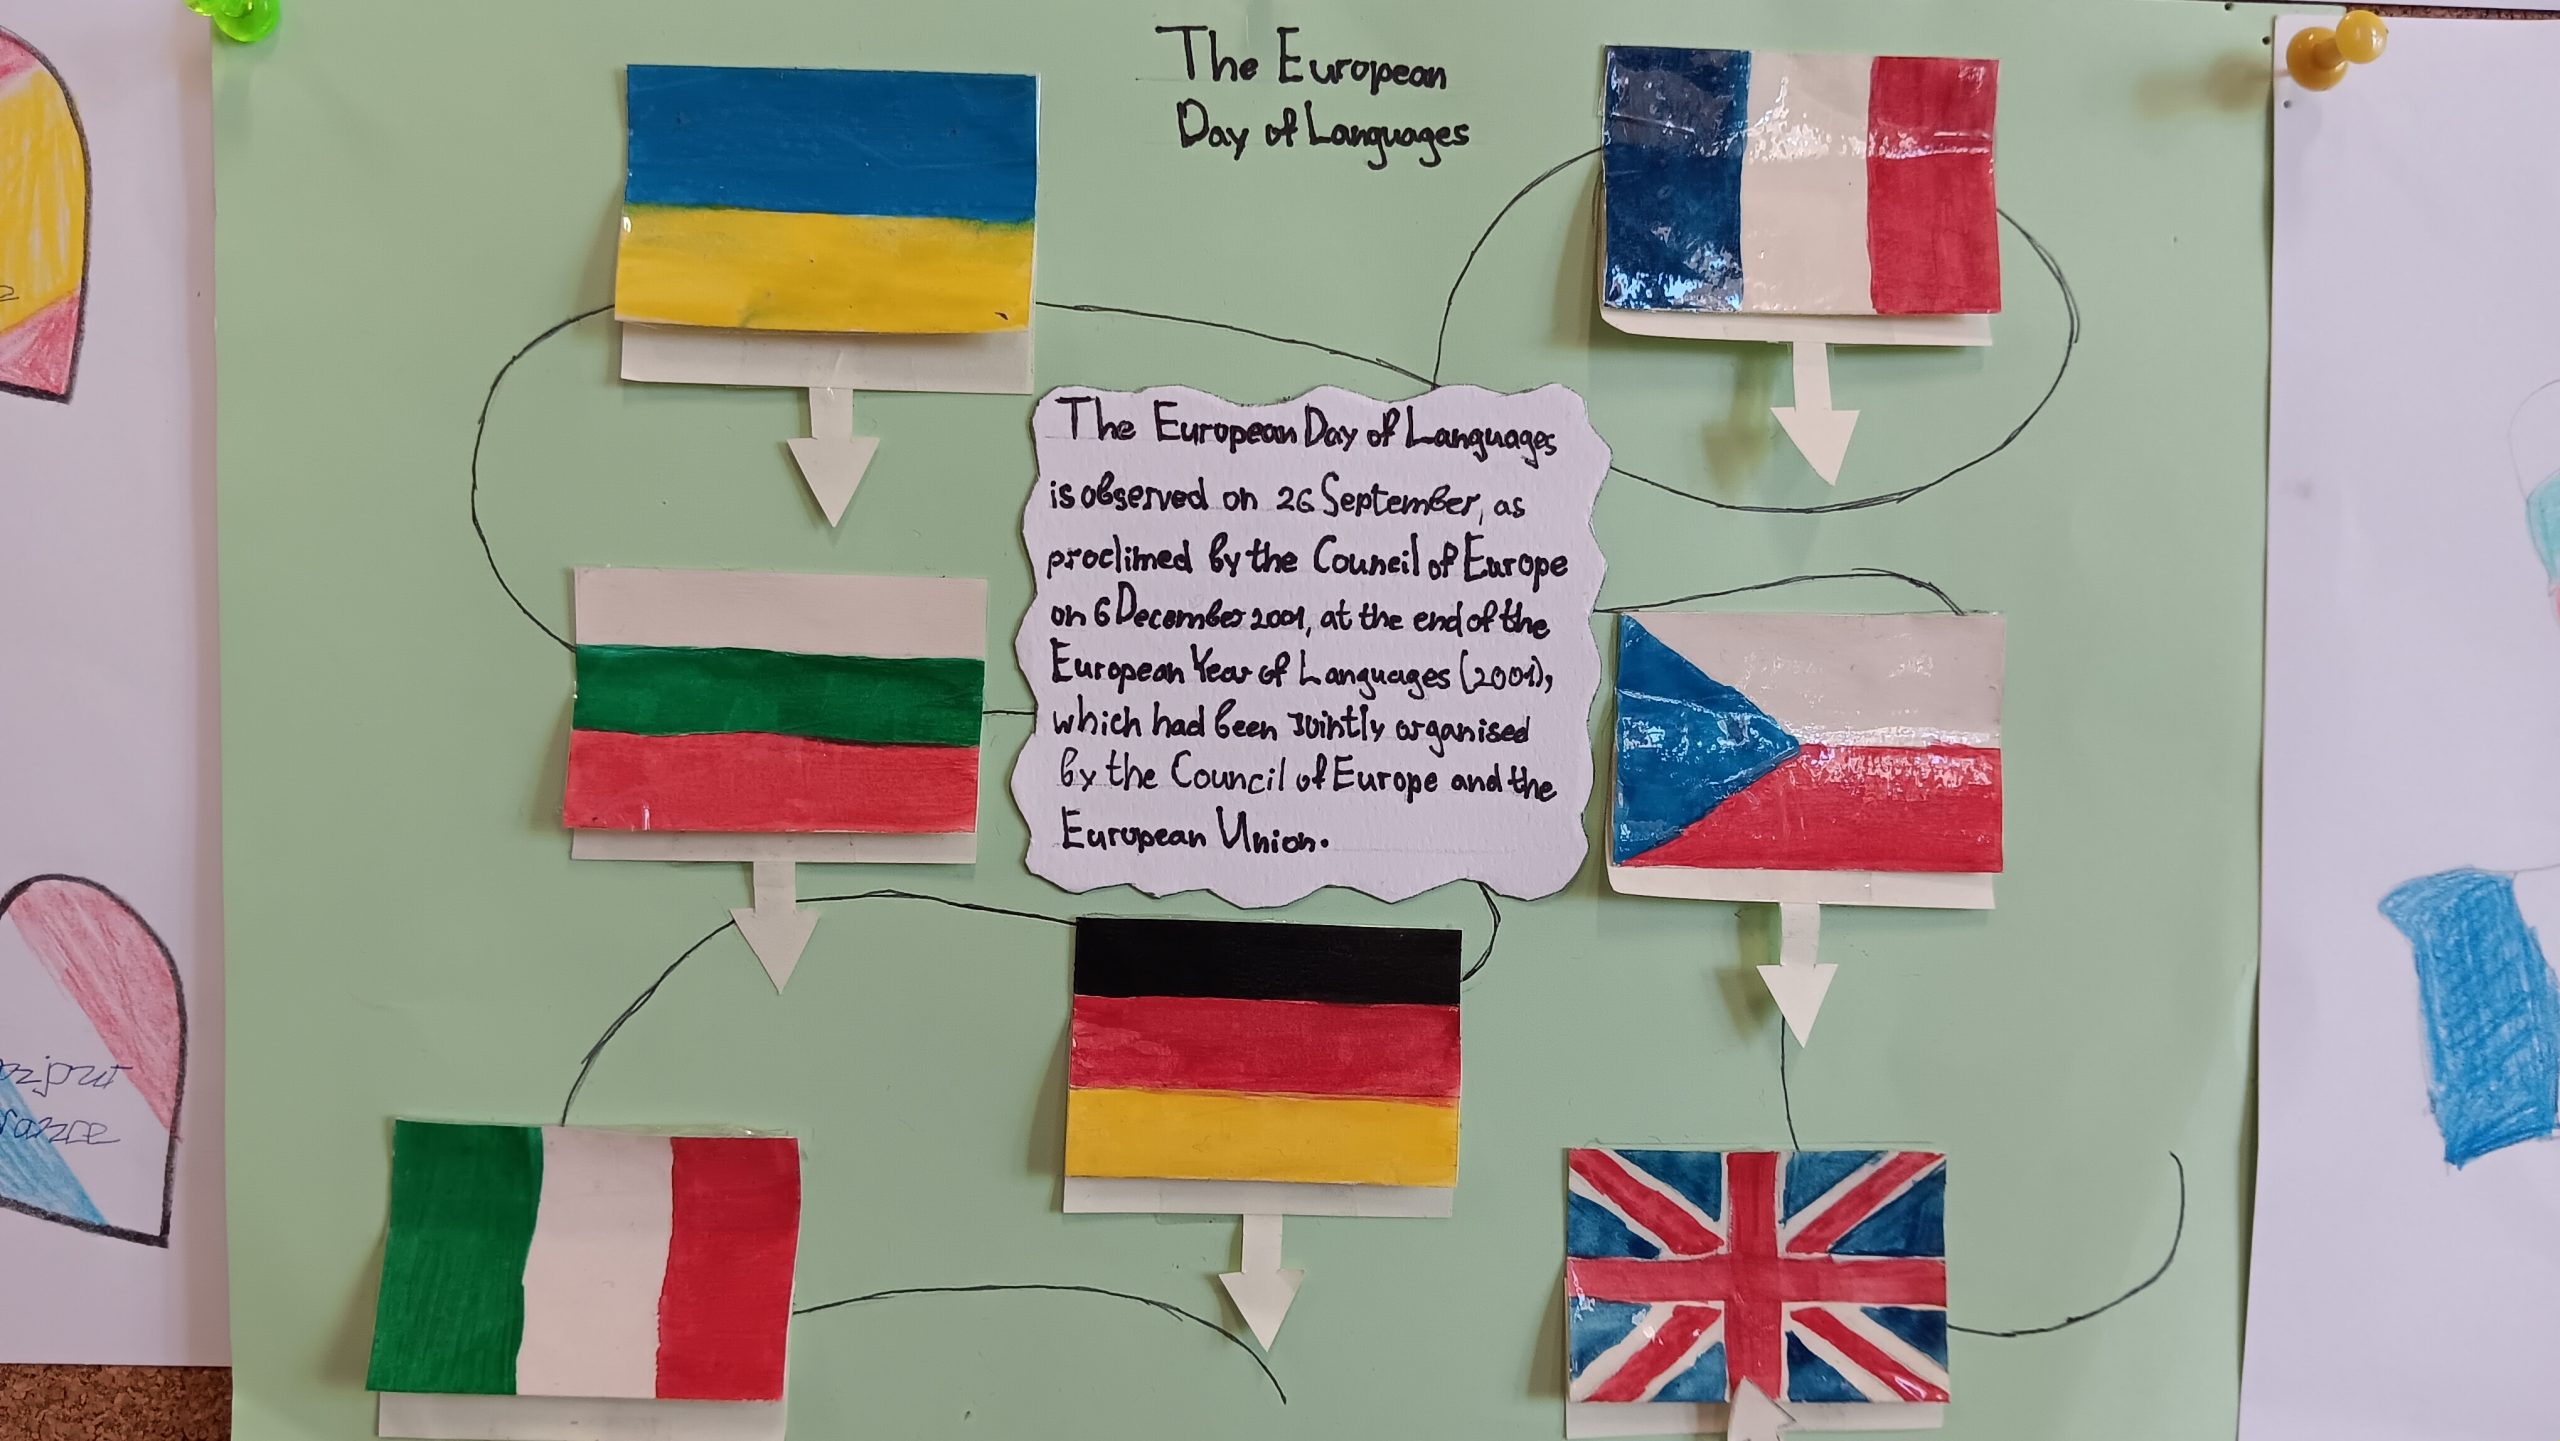 The European
Day of Languages
The European Day of Languages
is observed on 26 September, as
proclimed by the Council of Europe
on 6 December 2001, at the end of the
European Year of Languages (2001),
which had been jointly organised
by the Council of Europe and the
European Union.